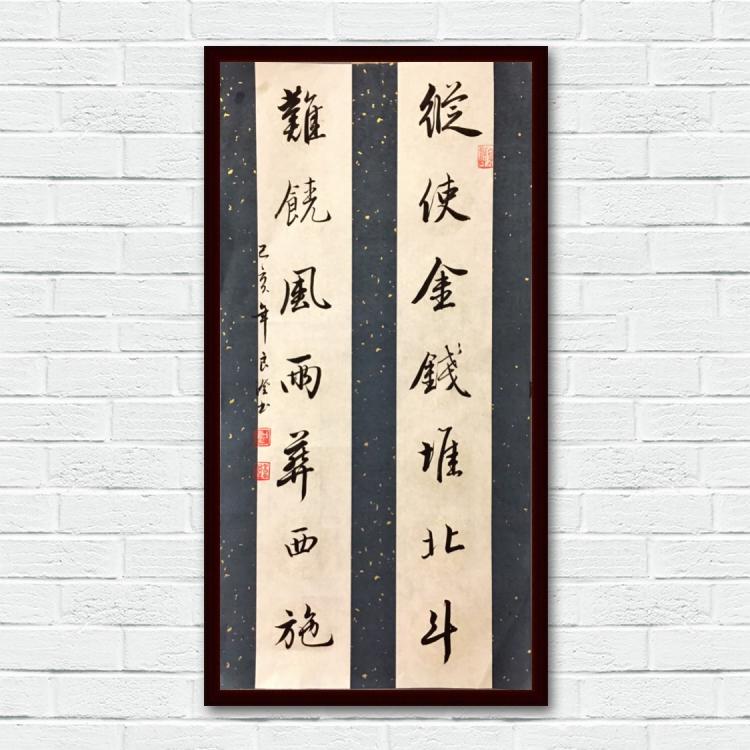 縱使金錢堆北斗
難饒風雨葬西施
己亥年良俊书